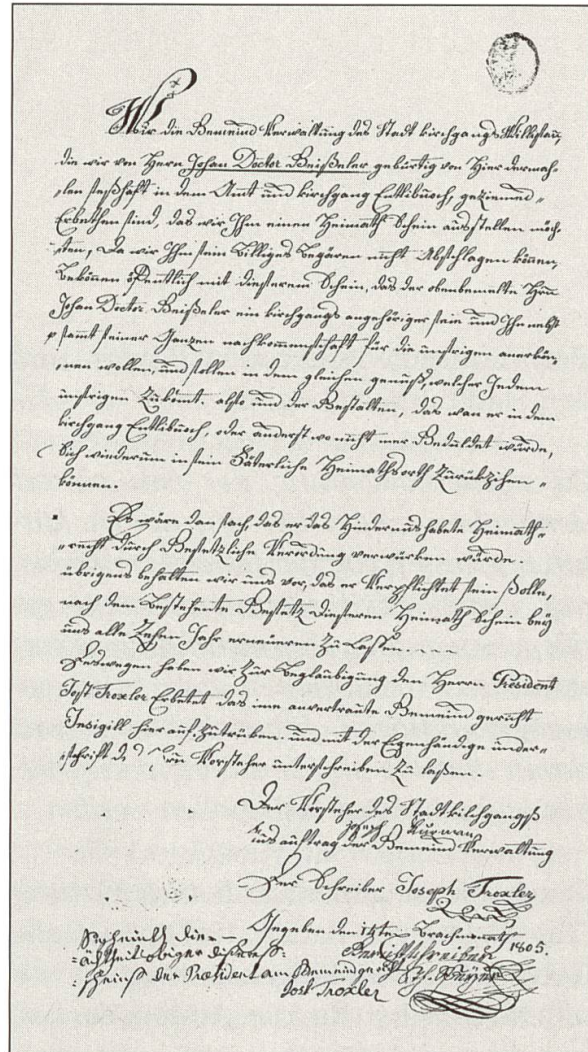 Wir die Gemeind Verwaltung des Stadt kirchgangs Willisau,
die wir von Herrn Johan Doctor Beißeler gebürtig von Hier dermah-
-len seßhaft in dem Amt und kirchgang Entlibuoch, geziemend-
Erbethen sind, das wir Ihm einen Heimath Schein ausstellen möch-
-ten, Da wir Ihm sein Billiges Begären nicht Abschlagen können,
Bekönnen öffentlich mit diesserem Schein, das der obenbemelte Hrn
Johan Doctor Beißeler ein kirchgangs angehöriger sein und Ihn nebst
samt seiner Ganzen nachkommenschaft für die unsrigen anerkön-
-nen wollen, und sollen in dem gleichen genuß, welcher Jedem
unsrigen Zukömt. also und der Gestalten, das wan er in dem
kirchgang Entlibuoch, oder anderst wo nicht mer Geduldet würde,
Sich widerum in sein Väterliche Heimathsorth Zurükzihen-
können.
Es wäre dan sach, das er das Hinderuns habete Heimath-
-recht durch Gesetzliche Verordung verwürken würde.
übrigens behalten wir uns vor, das er Verpflichtet sein Solle,
nach dem Bestehente Gesetz diesseren Heimath Schein bey
uns alle Zehen Jahr erneueren Zu Lassen.
Desswegen haben wir Zur Beglaubigung den Herrn President
Jost Troxler Erbetet das ime anvertraute Gemeind gericht
Insigill hier auf Zutrüken. und mit der Eigenhändige under-
schrift Vorsteher unterschreiben Zu laßen.
Der Vorsteher des Stadtkilchgangß
Joseph Kurman
aus auftrag der Gemeind Verwaltung
Der Schreiber Joseph Troxler
Gegeben den 14ten Brachmonat 1805.
Sigheinls die-
Gerichtschreiber
-ächtheit obiger
-scheinß der Præsident am Gemeindgericht
Jost Troxler